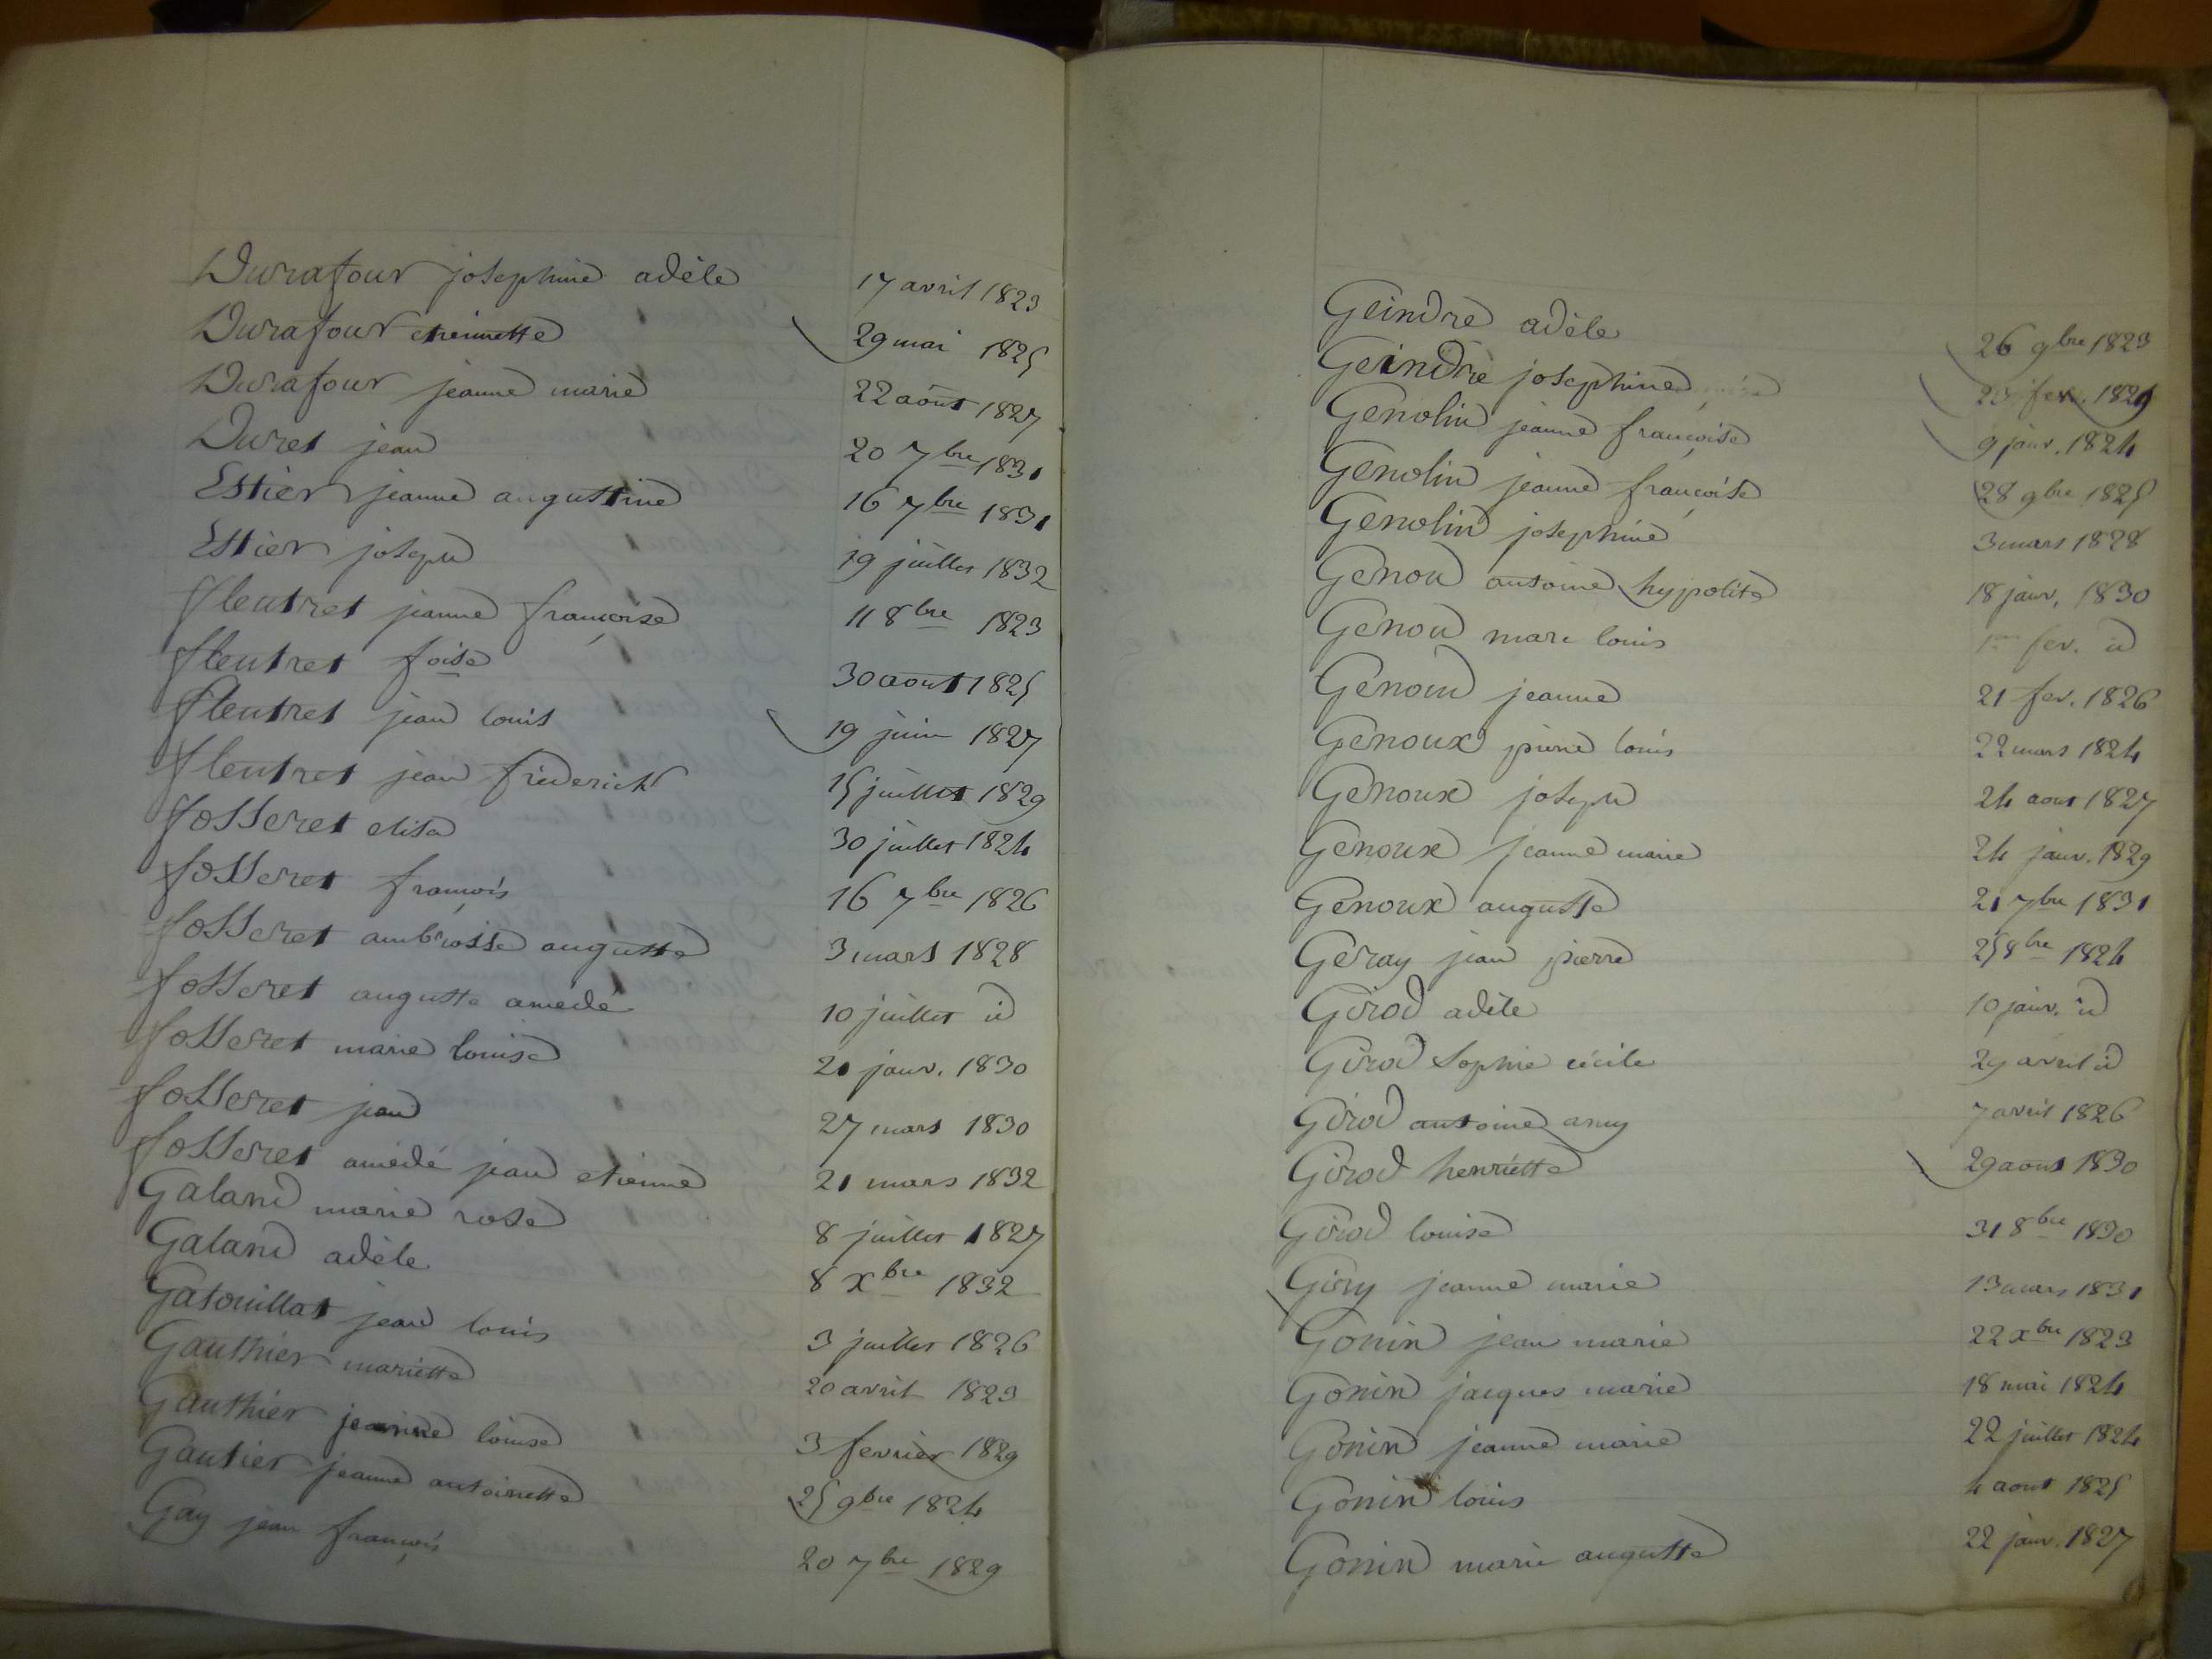 Durafour josephine adèle 17 avril 1823
Durafour etiennette 29 mai 1825
Durafour jeanne marie 22 août 1827
Duret jean 20 7bre 1831
Estier jeanne augustine 16 7bre 1831
Estier joseph 19 juillet 1832
fleutret jeanne françoise 11 8bre 1823
fleutret foise 30 aout 1825
fleutret jean louis 19 juin 1827
fleutret jean frederick 15 juillet 1829
fosseret elisa 30 juillet 1824
fosseret françois 16 7bre 1826
fosseret ambroisse auguste 3 mars 1828
fosseret auguste amedé 10 juillet id
fosseret marie louise 20 janv. 1830
fosseret jean 27 mars 1830
fosseret amédé jean etienne 21 mars 1832
Galand marie rose 8 juillet 1827
Galand adèle 8 xbre 1832
Gatouillat jean louis 3 juillet 1826
Gauthier mariette 20 avril 1823
Gauthier jeanne louise 3 fevrier 1829
Gautier jeanne antoinette 25 9bre 1824
Gay jean françois 20 7bre 1829
Geindre adèle 26 9bre 1823
Geindre josephine fev. 1829
Genolin jeanne françoise 9 janv. 1824
Genolin jeanne françoise 28 9bre 1825
Genolin josephine 3 mars 1828
Genou antoine hypolite 18 janv. 1830
Genou marc louis 1er fev. id
Genoud jeanne 21 fev. 1826
Genoux pierre louis 22 mars 1824
Genoux joseph 24 aout 1827
Genoux jeanne marie 24 janv. 1829
Genoux auguste 21 7bre 1831
Geray jean pierre 25 8bre 1824
Girod adèle 10 janv. id
Girod Sophie cécile 29 avril id
Girod antoine amy 7 avril 1826
Girod henriette 29 aout 1830
Girod louise 31 8bre 1830
Giry jeanne marie 13 mars 1831
Gonin jean marie 22 xbre 1823
Gonin jacques marie 18 mai 1824
Gonin jeanne marie 22 juillet 1824
Gonin louis 4 aout 1825
Gonin marie auguste 22 janv. 1827